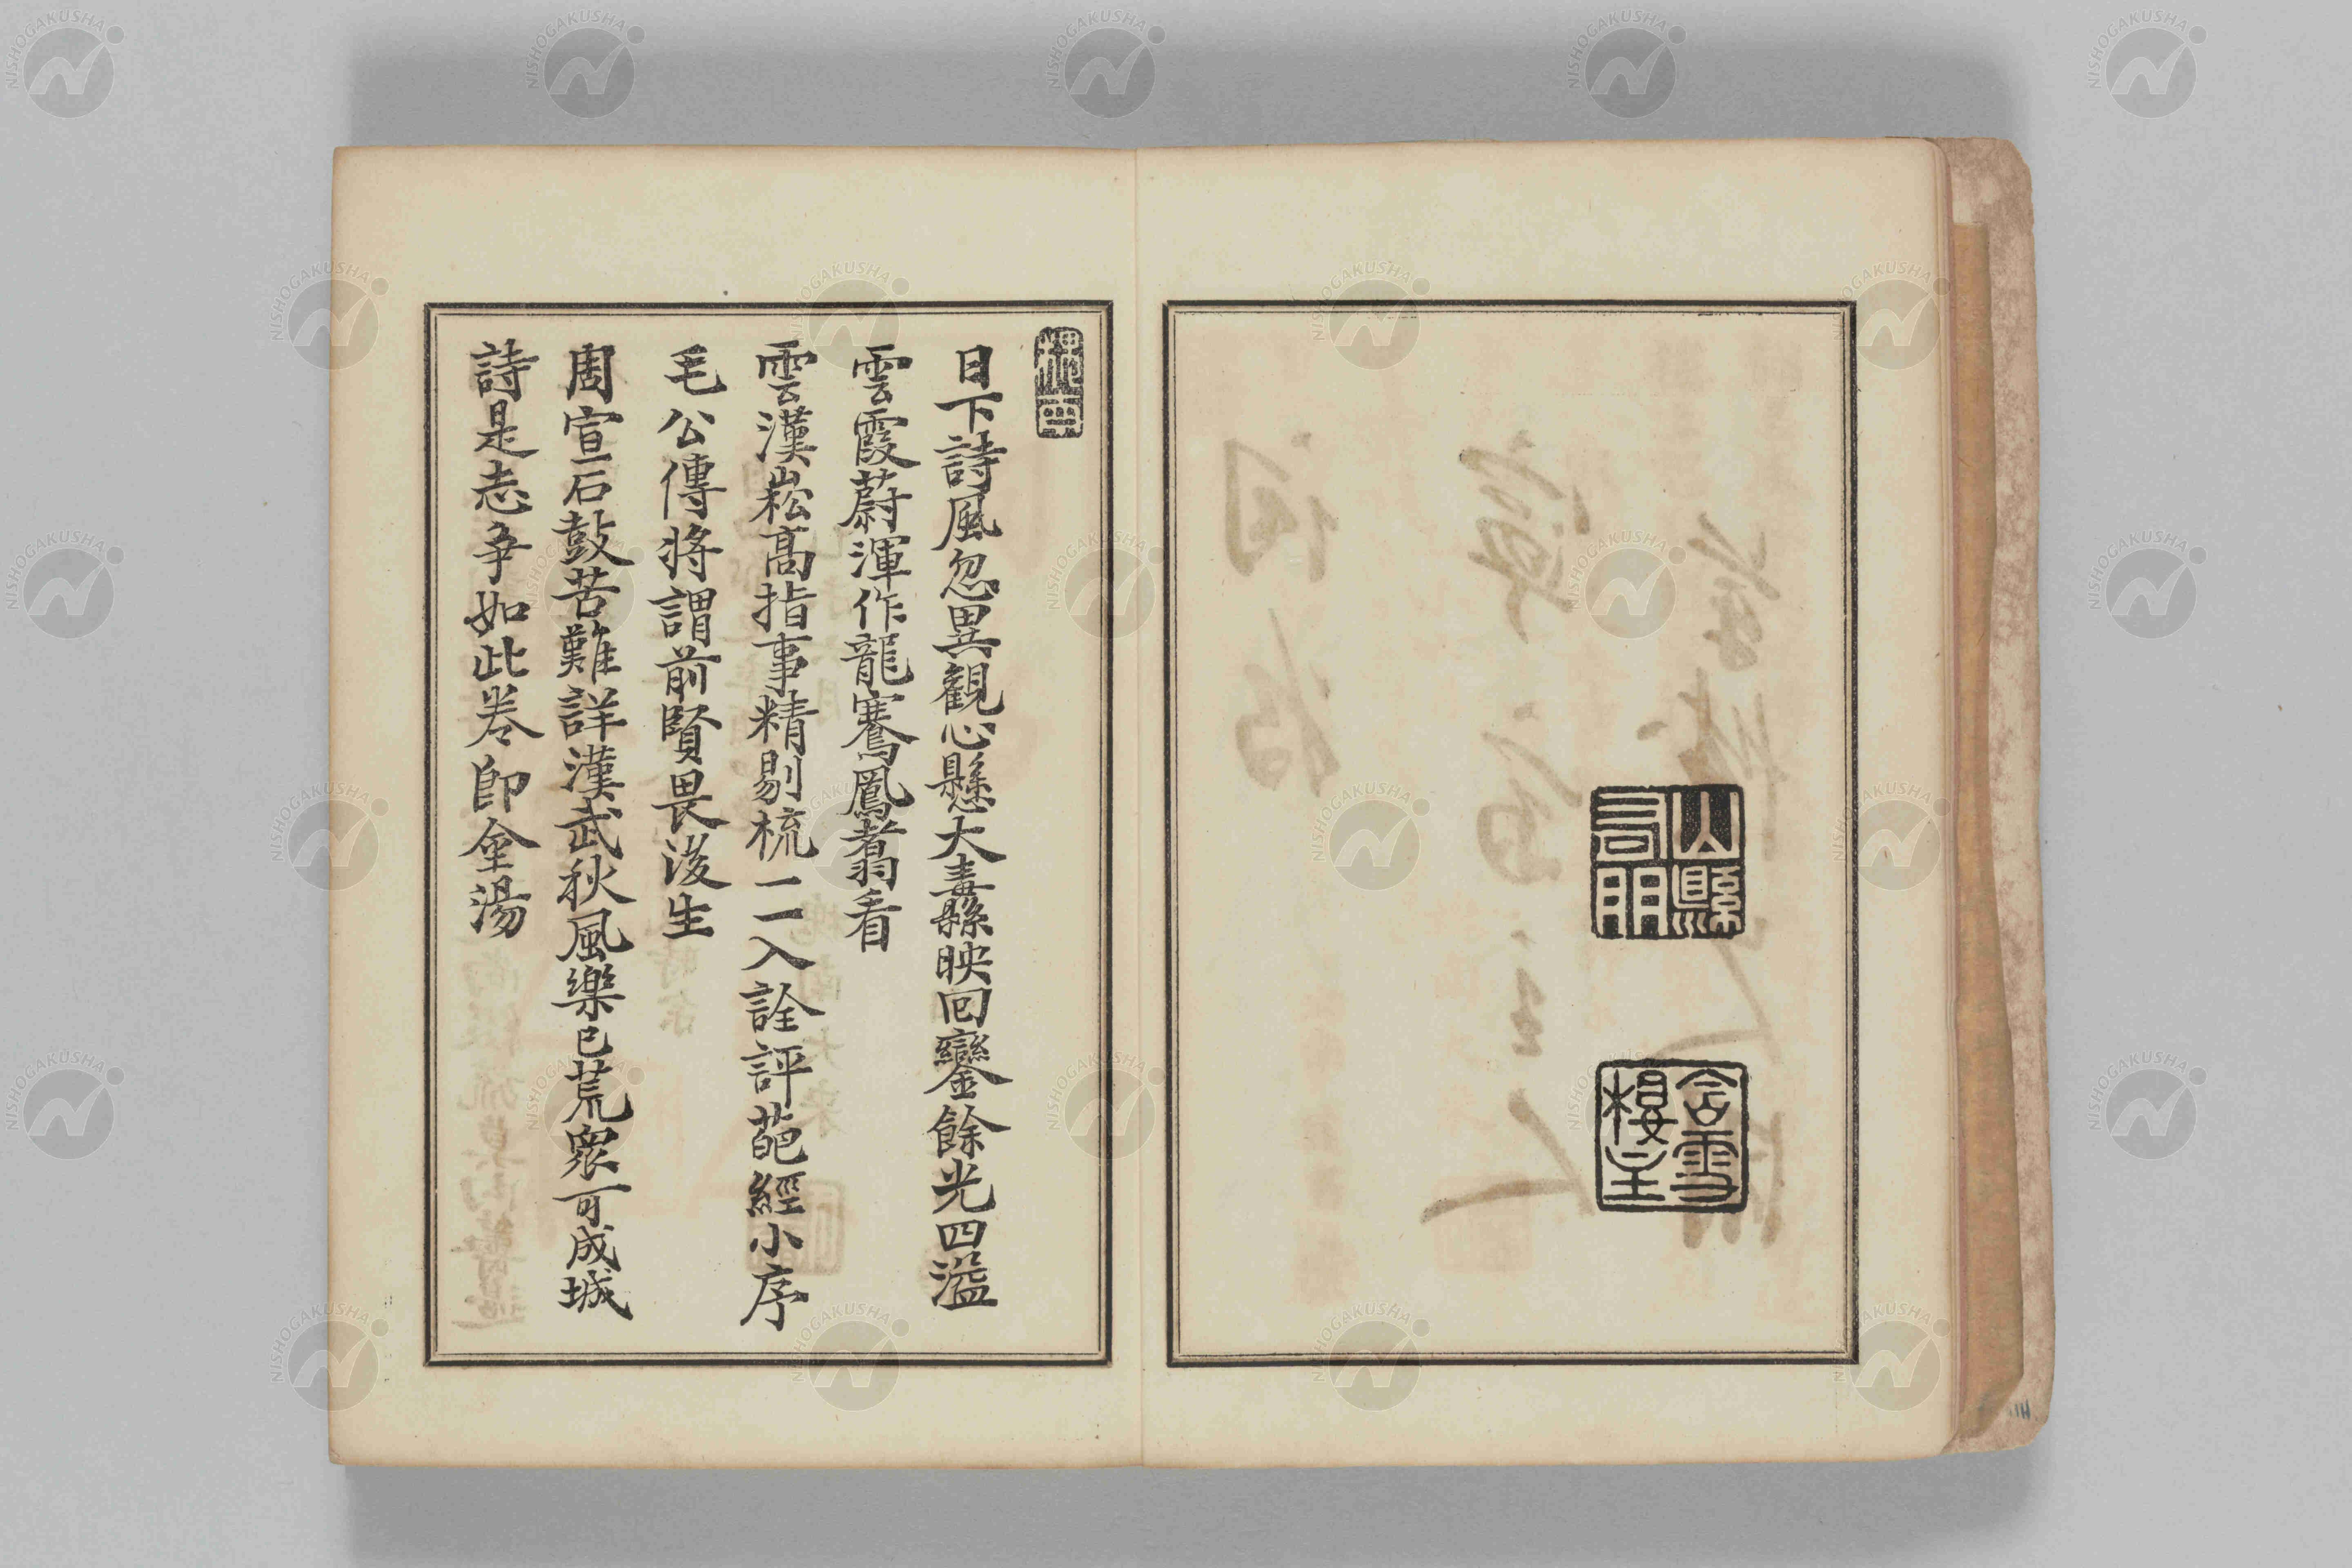 山縣有朋
含雪樓主
日下詩風忽異觀心懸大纛縣映回鑾餘光四溢
雲霞蔚渾作龍騫鳳翥看
雲漢崧高指事精剔梳一一入詮評葩經小序
毛公傳将謂前賢畏後生
周宣石鼓苦難詳漢武秋風樂已荒衆可成城
詩是志争如此卷即金湯
NISHOGAKUSHA